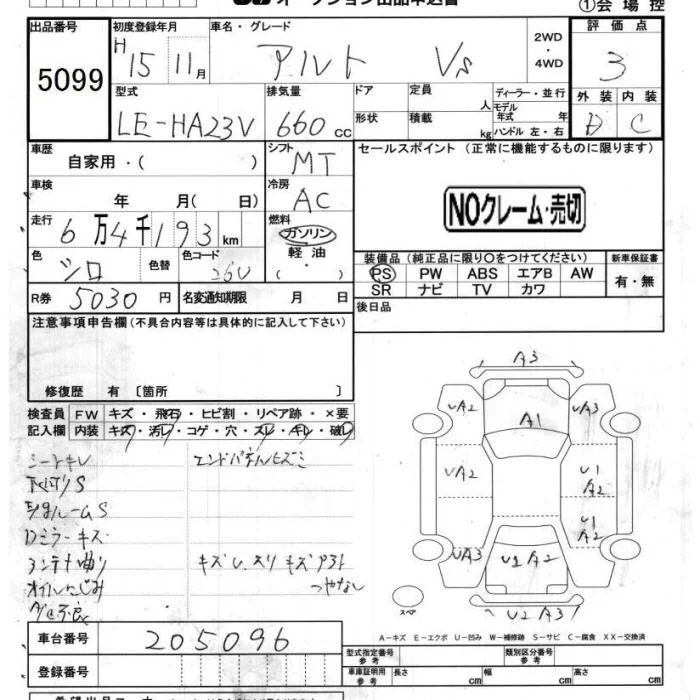 オークション出品申込書
①会場控
出品番号
5099
初度登録年月
H 15 11月
車名・グレード
アルト Vs
2WD
・
4WD
評価点
3
型式
LE-HA23V
排気量
660 cc
ドア
形状
定員
人
積載
kg
ディーラー・並行
モデル年式 年
ハンドル 左・右
外装 内装
D C
車歴
自家用・( )
シフト
MT
セールスポイント (正常に機能するものに限ります)
車検
年 月( 日)
冷房
AC
NOクレーム・売切
走行
6万4千193km
燃料
ガソリン
軽油
( )
色
シロ
色替
色コード
26U
装備品 (純正品に限り○をつけてください)
新車保証書
PS PW ABS エアB AW
SR ナビ TV カワ
有・無
R券
5030円
名変通知期限 月 日
後日品
注意事項申告欄(不具合内容等は具体的に記入して下さい)
修復歴 有 〔箇所 〕
検査員記入欄
FW キズ・飛石・ヒビ割・リペア跡・×要
内装 キズ・汚レ・コゲ・穴・スレ・キレ・破レ
シートキレ
エンドパネルヒズミ
下廻りS
S
Dミラーキズ
アンテナ曲り
キズU.スリキズ
オイルにじみ
つやなし
A3
UA2
A1
UA3
UA2
U1
A2
U1
A2
UA3
U1 A2
U2 A3
スペア
A-キズ E-エクボ U-凹み W-補修跡 S-サビ C-腐食 XX-交換済
車台番号
205096
登録番号
型式指定番号
参考
類別区分番号
参考
車庫証明用
参考
長さ cm
幅 cm
高さ cm